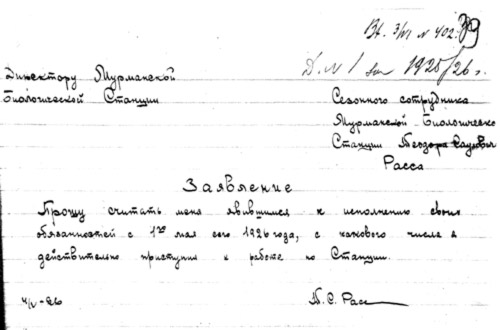 Вх. 3/VI № 402. 39
Д. № 1 1925/26 г.
Директору Мурманской
Биологической Станции
Сезонного сотрудника
Мурманской Биологическо
Станции Теодора Сауловича
Расса
Заявление
Прошу считать меня явившимся к исполнению своих
обязанностей с 1го мая сего 1926 года, с какового числа я
действительно приступил к работе по Станции.
4/V-26 Т. С. Расс